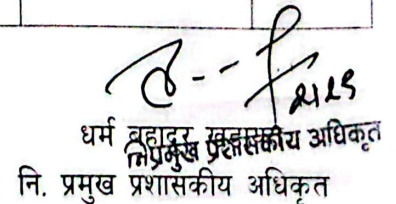 धर्म बहादुर
नि.प्रमुख प्रशासकीय अधिकृत
नि. प्रमुख प्रशासकीय अधिकृत